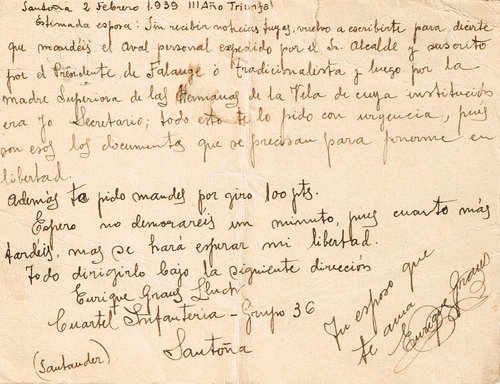 Santoña 2 Febrero 1.939 III Año Triunfal
Estimada esposa: Sin recibir noticias tuyas, vuelvo a escribirte para decirte
que mandéis el Aval personal expedido por el Sr. Alcalde y suscrito
por el Presidente de Falange ó Tradicionalista y luego por la
madre Superiora de las Hermanas de la Vela de cuya institución
era yo Secretario; todo esto te lo pido con urgencia, pues
son esos los documentos que se precisan para ponerme en
libertad.
Además te pido mandes por giro 100 pts.
Espero no demoraréis un minuto, pues cuanto más
tardéis, mas se hará esperar mi libertad.
Todo dirigirlo bajo la siguiente dirección
Enrique Graus Lluch
Cuartel Infanteria - Grupo 36
Santoña
(Santander)
Tu esposo que
te ama
Enrique Graus